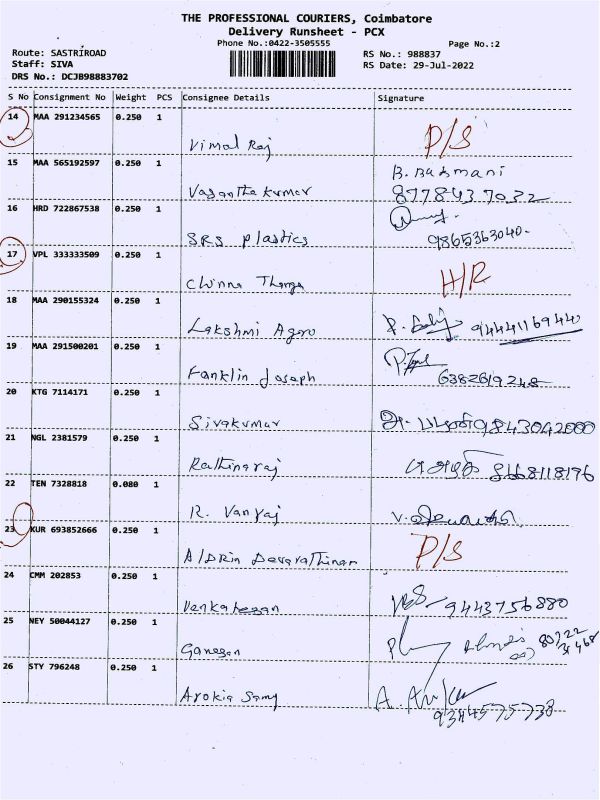 THE PROFESSIONAL COURIERS, Coimbatore
Delivery Runsheet - PCX
Phone No.:0422-3505555
Page No.:2
Route: SASTRIROAD
Staff: SIVA
DRS No.: DCJB98883702
RS No.: 988837
RS Date: 29-Jul-2022
S No Consignment No Weight PCS Consignee Details Signature
14 MAA 291234565 0.250 1
Vimal Raj P/S
15 MAA 565192597 0.250 1 B. Bahmani
Vasantha kumar 8778437032
16 HRD 722867538 0.250 1
SRS plastics 9865363040.
17 VPL 333333509 0.250 1
Chinna Thanga H/R
18 MAA 290155324 0.250 1
Lakshmi Agro 94441169440
19 MAA 291500201 0.250 1
Fanklin Joseph 6382619248
20 KTG 7114171 0.250 1
Sivakumar 9843042000
21 NGL 2381579 0.250 1
Rathinaraj 8668118196
22 TEN 7328818 0.080 1
R. Vanraj
23 KUR 693852666 0.250 1
Aldrin Devarathinam P/S
24 CMM 202853 0.250 1
Venkatesan 9443756880
25 NEY 50044127 0.250 1
Ganesan
26 STY 796248 0.250 1
Arokia Samy
9384575738